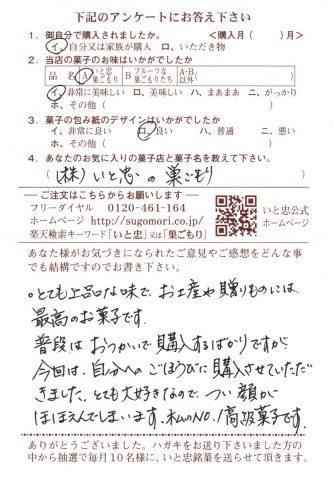 下記のアンケートにお答え下さい
1. 御自分で購入されましたか。 <購入月( )月>
イ、自分又は家族が購入 ロ、いただき物
2. 当店の菓子のお味はいかがでしたか
品名 A いと忠巣ごもり B フルーツな巣ごもりたち A・B以外( )
イ、非常に美味しい ロ、美味しい ハ、まあまあ ニ、がっかり
ホ、その他( )
3. 菓子の包み紙のデザインはいかがでしたか
イ、非常に良い ロ、良い ハ、普通 ニ、悪い
ホ、その他( )
4. あなたのお気に入りの菓子店と菓子名を教えて下さい。
((株)いと忠の巣ごもり )
ご注文はこちらからお願いします
フリーダイヤル 0120-461-164
ホームページ http://sugomori.co.jp/
楽天検索キーワード「いと忠」又は「巣ごもり」
いと忠公式
ホームページ
あなた様がお気づきになられたご意見やご感想をどんな事
でも結構ですのでお書き下さい。
○とても上品な味で、お土産や贈りものには
最高のお菓子です。
普段はおつかいで購入するばかりですが
今回は、自分へのごほうびに購入させていただ
きました。とても大好きなので、つい顔が
ほほえんでしまいます。私のNO.1高級菓子です。
ありがとうございました。ハガキをお送り下さいました方の
中から抽選で毎月10名様に、いと忠銘菓を送らせて頂きます。